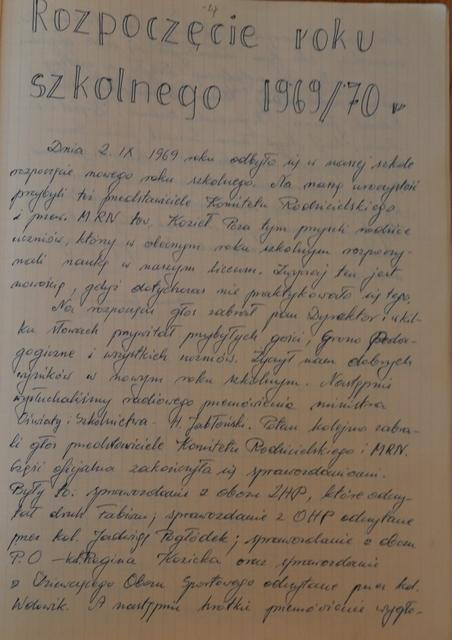 Rozpoczęcie roku
szkolnego 1969/70 r
Dnia 2. IX 1969 roku odbyło się w naszej szkole
rozpoczęcie nowego roku szkolnego. Na naszą uroczystość
przybyli też przedstawiciele Komitetu Rodzicielskiego
i przew. MRN tow. Kozieł Poza tym przyszli rodzice
uczniów, którzy w obecnym roku szkolnym rozpoczy-
nali naukę w naszym liceum. Zwyczaj ten jest
nowością, gdyż dotychczas nie praktykowało się tego.
Na rozpoczęciu głos zabrał pan Dyrektor i w kil-
ku słowach przywitał przybyłych gości, Grono Peda-
gogiczne i wszystkich uczniów. Życzył nam dobrych
wyników w nowym roku szkolnym. Następnie
wysłuchaliśmy radiowego przemówienia ministra
Oświaty i Szkolnictwa - H. Jabłoński. Potem kolejno zabra-
li głos przedstawiciele Komitetu Rodzicielskiego i MRN.
Część oficjalna zakończyła się sprawozdaniami.
Były to: sprawozdanie z obozu ZHP, które odczy-
tał druh Fabian; sprawozdanie z OHP odczytane
przez kol. Jadwigę Pogłódek; sprawozdanie z obozu
P.O - kol. Regina Kozicka oraz sprawozdanie
z Obozu Sportowego odczytane przez kol.
Wdowik. A następnie krótkie przemówienie wygło-